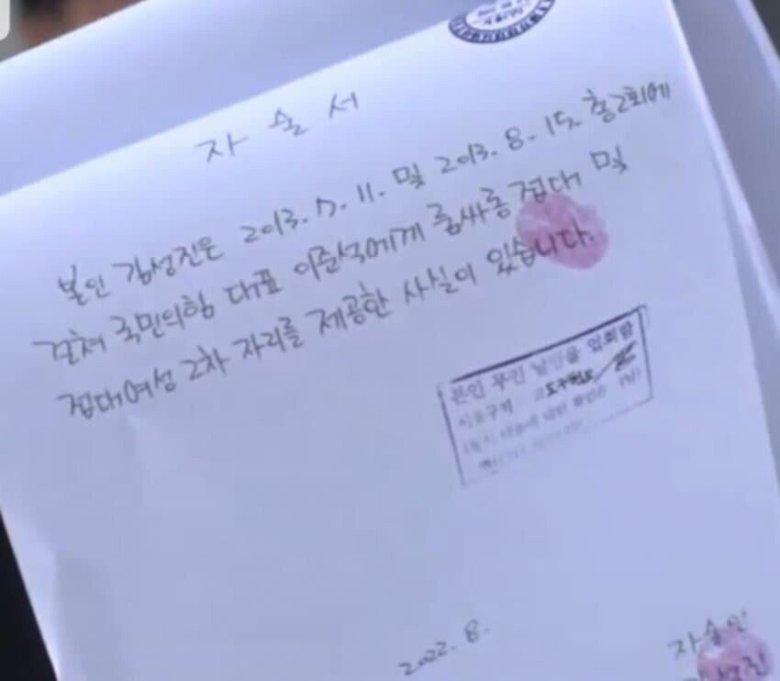 자술서
본인 김성진은 2013. 7. 11. 및 2013. 8. 15. 총 2회에
걸쳐 국민의힘 대표 이준석에게 룸싸롱 접대 및
접대여성 2차 자리를 제공한 사실이 있습니다.
본인 무인 날인을 입회함
2022. 8.
자술인
성진